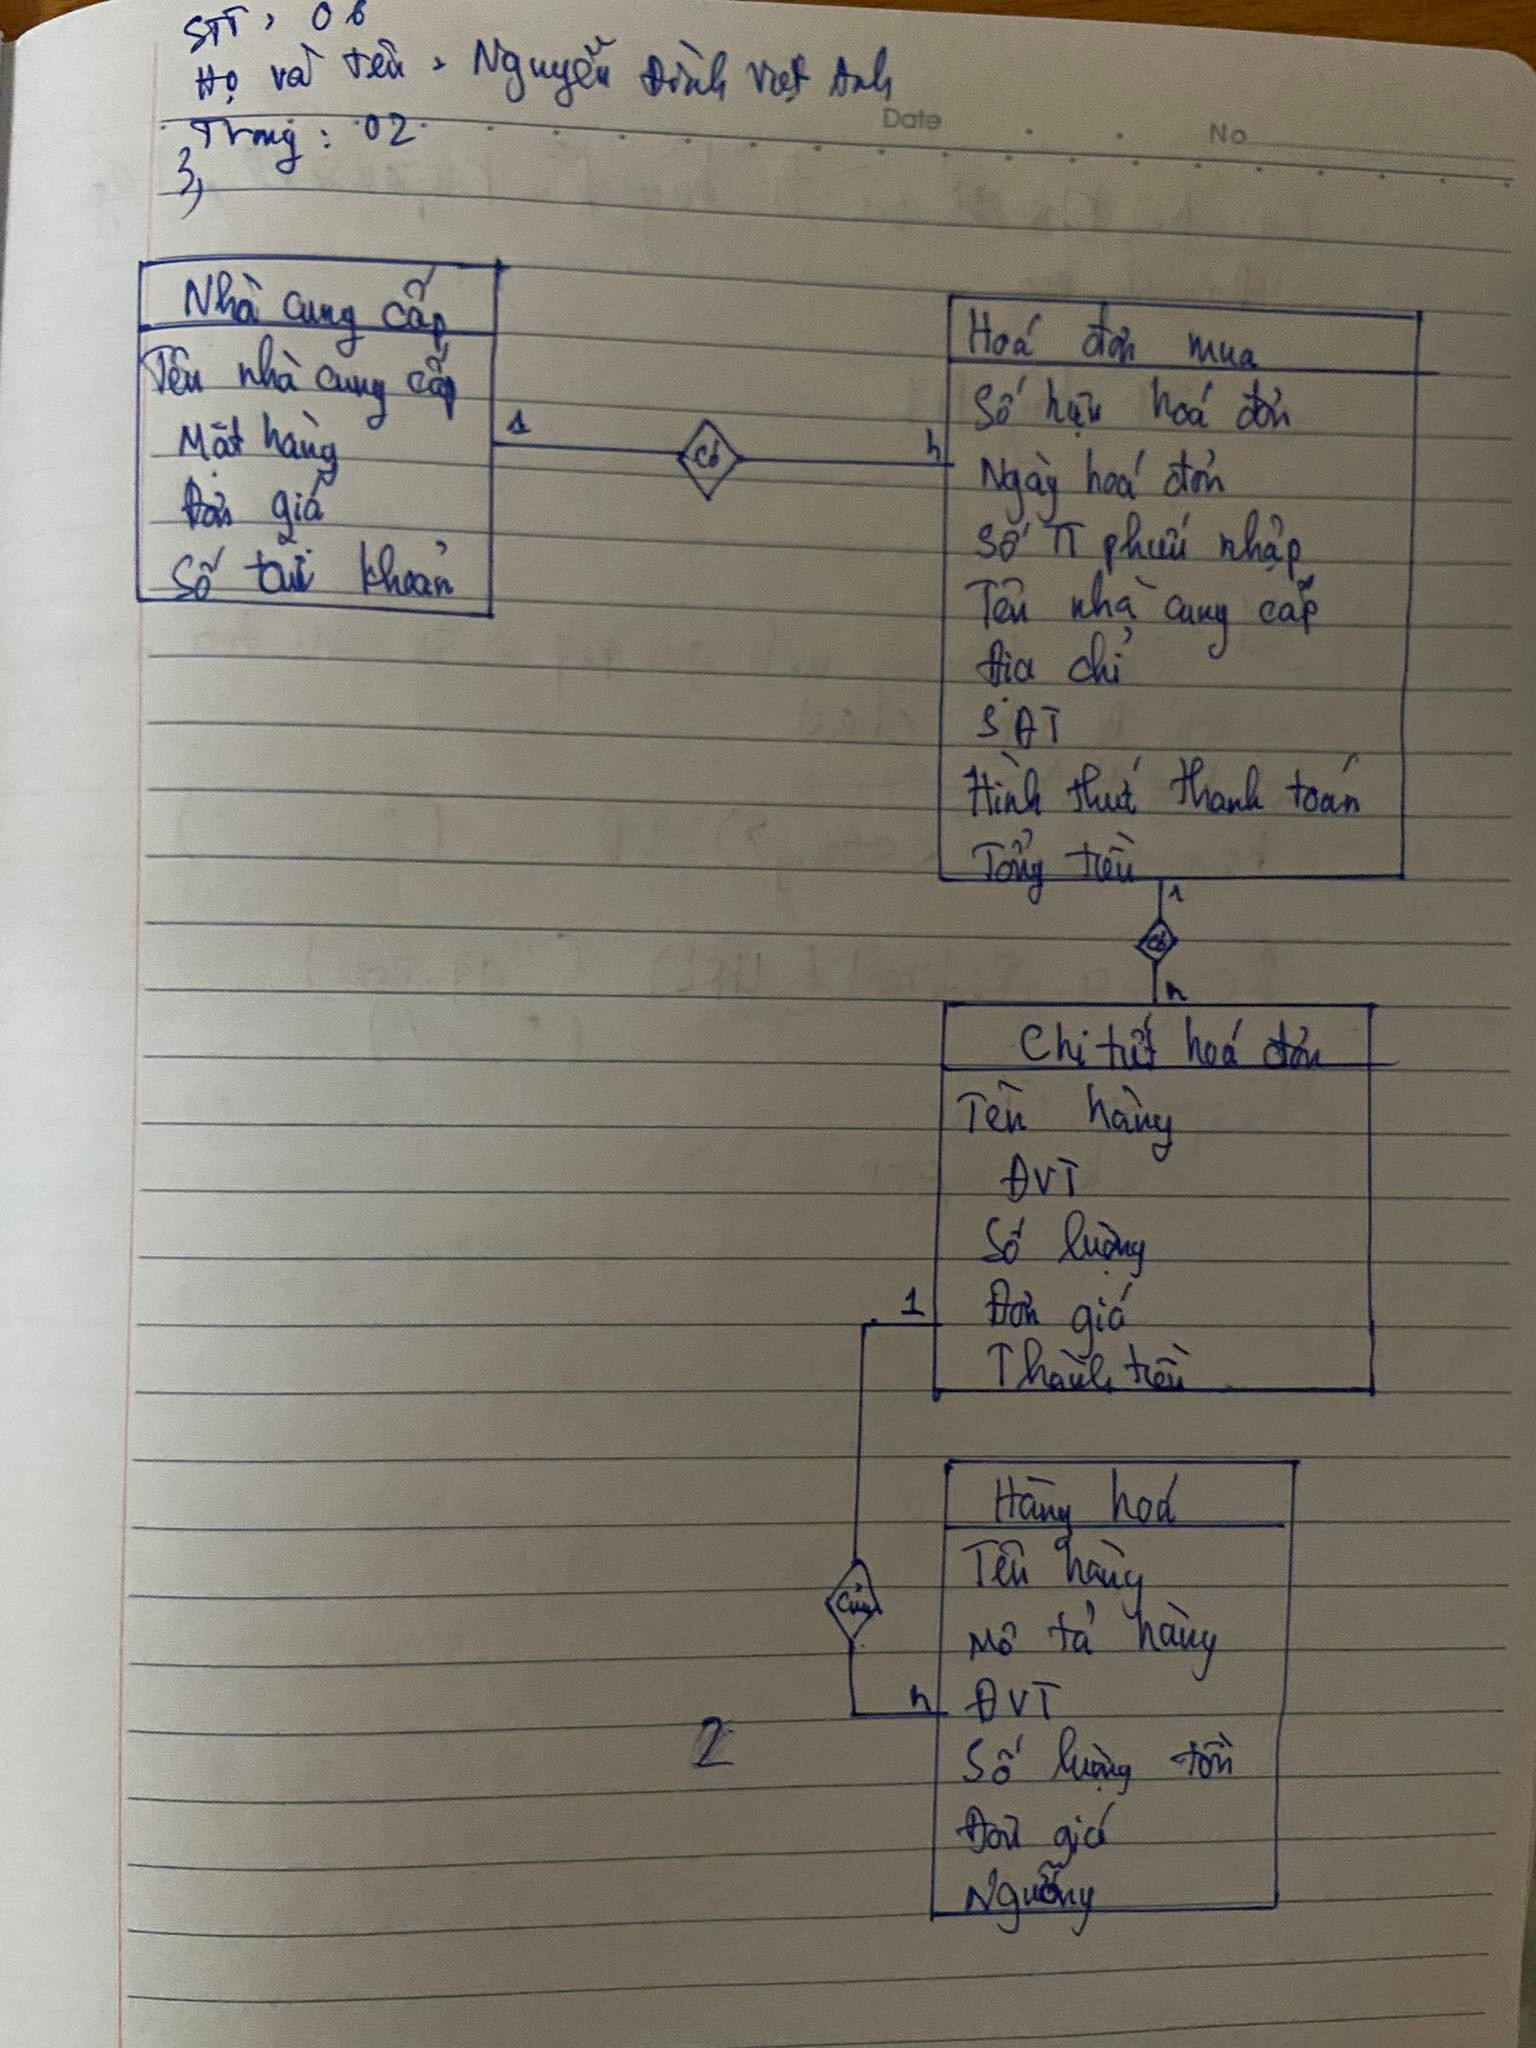 STT: 06
Họ và tên: Nguyễn Đình Việt Anh
Trang: 02
Date No
3,
Nhà cung cấp
Tên nhà cung cấp
Mặt hàng
Đơn giá
Số tài khoản
1
Có
n
Hoá đơn mua
Số hiệu hoá đơn
Ngày hoá đơn
Số TT phiếu nhập
Tên nhà cung cấp
Địa chỉ
SĐT
Hình thức thanh toán
Tổng tiền
1
Có
n
Chi tiết hoá đơn
Tên hàng
ĐVT
Số lượng
Đơn giá
Thành tiền
1
Của
n
Hàng hoá
Tên hàng
Mô tả hàng
ĐVT
Số lượng tồn
Đơn giá
Ngưỡng
2